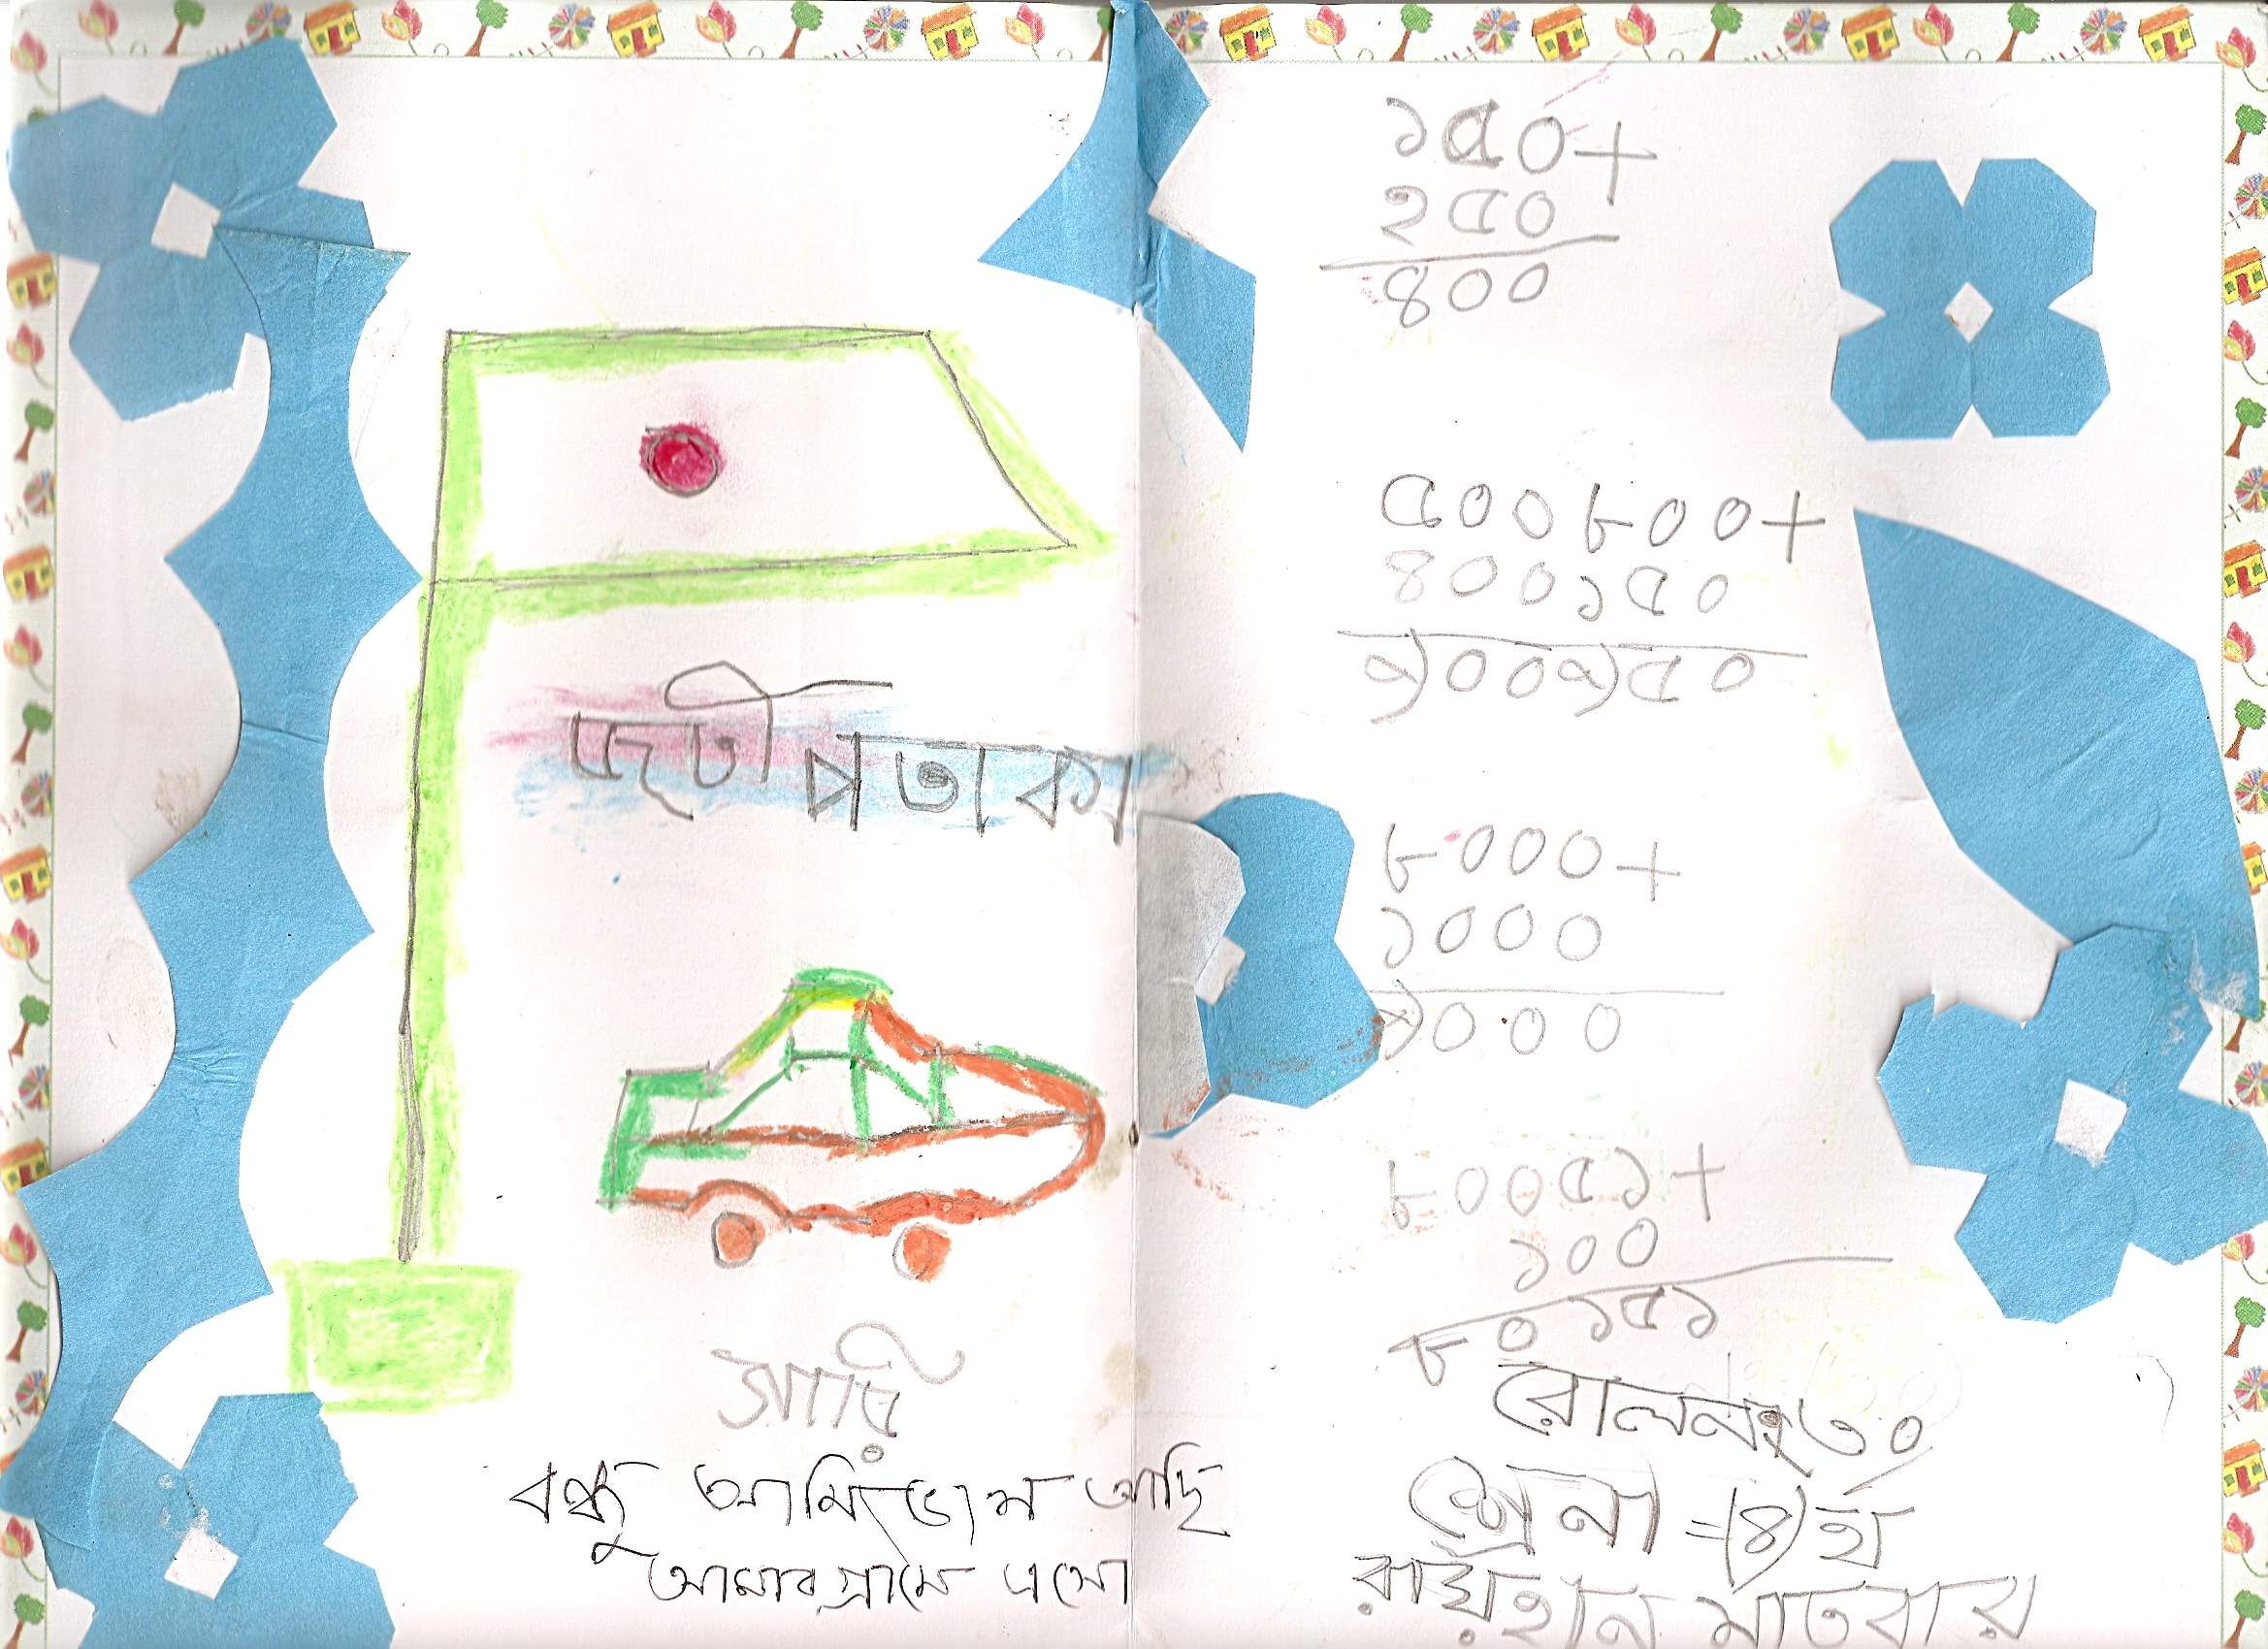 জতী পতাকা
গারি
বন্ধু আমি ভাল আছি
আমার গ্রামে এসো
১৫০+
২৫০
৪০০
৫০০৮০০+
৪০০১৫০
৯০০৯৫০
৮০০০+
১০০০
৯০০০
৮০০৫১+
১০০
৮০১৫১
রোল নং ৩০
শ্রেনী =(৪)র্থ
রায়হান মাতবার